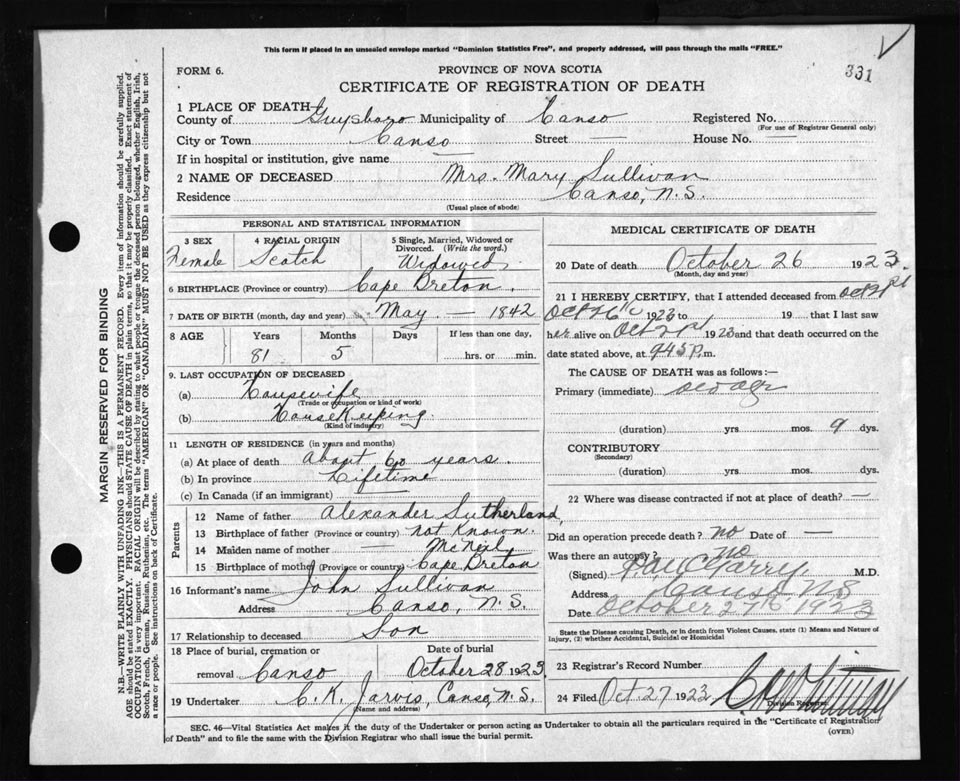 This form if placed in an unsealed envelope marked "Dominion Statistics Free", and properly addressed, will pass through the mails "FREE."
331
FORM 6. PROVINCE OF NOVA SCOTIA
CERTIFICATE OF REGISTRATION OF DEATH
1 PLACE OF DEATH
County of Guysboro Municipality of Canso Registered No.
(For use of Registrar General only)
City or Town Canso Street — House No. —
If in hospital or institution, give name —
2 NAME OF DECEASED Mrs. Mary Sullivan
Residence Canso, N.S.
(Usual place of abode)
PERSONAL AND STATISTICAL INFORMATION
3 SEX Female
4 RACIAL ORIGIN Scotch
5 Single, Married, Widowed or Divorced. (Write the word.) Widowed
6 BIRTHPLACE (Province or country) Cape Breton.
7 DATE OF BIRTH (month, day and year) May — 1842
8 AGE Years Months Days If less than one day,
81 5 hrs. or min.
9. LAST OCCUPATION OF DECEASED
(a) Housewife
(Trade or occupation or kind of work)
(b) House Keeping.
(Kind of industry)
11 LENGTH OF RESIDENCE (in years and months)
(a) At place of death About 60 years.
(b) In province Lifetime
(c) In Canada (if an immigrant) —
Parents
12 Name of father Alexander Sutherland,
13 Birthplace of father (Province or country) not Known.
14 Maiden name of mother — McNeil
15 Birthplace of mother (Province or country) Cape Breton
16 Informant's name John Sullivan
Address Canso, N.S.
17 Relationship to deceased Son
18 Place of burial, cremation or removal Canso
Date of burial October 28 1923
19 Undertaker C. K. Jarvis, Canso, N.S.
(Name and address)
MEDICAL CERTIFICATE OF DEATH
20 Date of death October 26 1923.
(Month, day and year)
21 I HEREBY CERTIFY, that I attended deceased from Oct 21st
Oct 26th 1923 to 19 that I last saw
her alive on Oct 21st 1923 and that death occurred on the
date stated above, at 945 P.m.
The CAUSE OF DEATH was as follows:—
Primary (immediate) old age
(duration) yrs. mos. 9 dys.
CONTRIBUTORY
(Secondary)
(duration) yrs. mos. dys.
22 Where was disease contracted if not at place of death? —
Did an operation precede death? no Date of —
Was there an autopsy? no
(Signed) M.D.
Address Canso NS
Date October 27th 1923
State the Disease causing Death, or in death from Violent Causes, state (1) Means and Nature of Injury, (2) whether Accidental, Suicidal or Homicidal
23 Registrar's Record Number
24 Filed Oct. 27 1923
Division Registrar
SEC. 46—Vital Statistics Act makes it the duty of the Undertaker or person acting as Undertaker to obtain all the particulars required in the "Certificate of Registration
of Death" and to file the same with the Division Registrar who shall issue the burial permit.
(OVER)
MARGIN RESERVED FOR BINDING
N.B.—WRITE PLAINLY WITH UNFADING INK—THIS IS A PERMANENT RECORD. Every item of information should be carefully supplied.
AGE should be stated EXACTLY. PHYSICIANS should STATE CAUSE OF DEATH in plain terms, so that it may be properly classified. Exact statement of
OCCUPATION is very important. RACIAL ORIGIN will be described by stating to what people or tongue the deceased person belonged, whether English, Irish,
Scotch, French, German, Russian, Ruthenian, etc. The terms "AMERICAN" or "CANADIAN" MUST NOT BE USED as they express citizenship but not
a race or people. See instructions on back of Certificate.